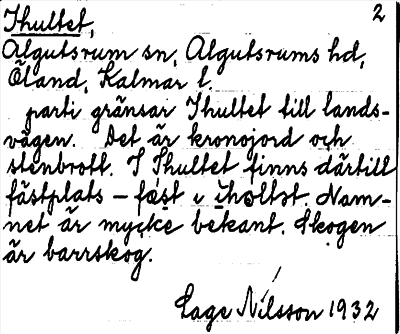 2
Ihultet,
Algutsrum sn, Algutsrums hd,
Öland, Kalmar l.
parti gränsar Ihultet till lands-
vägen. Det är kronojord och
stenbrott. I Ihultet finns därtill
fästplats – fæst
Nam-
net är mycke bekant. Skogen
är barrskog.
Lage Nilsson 1932